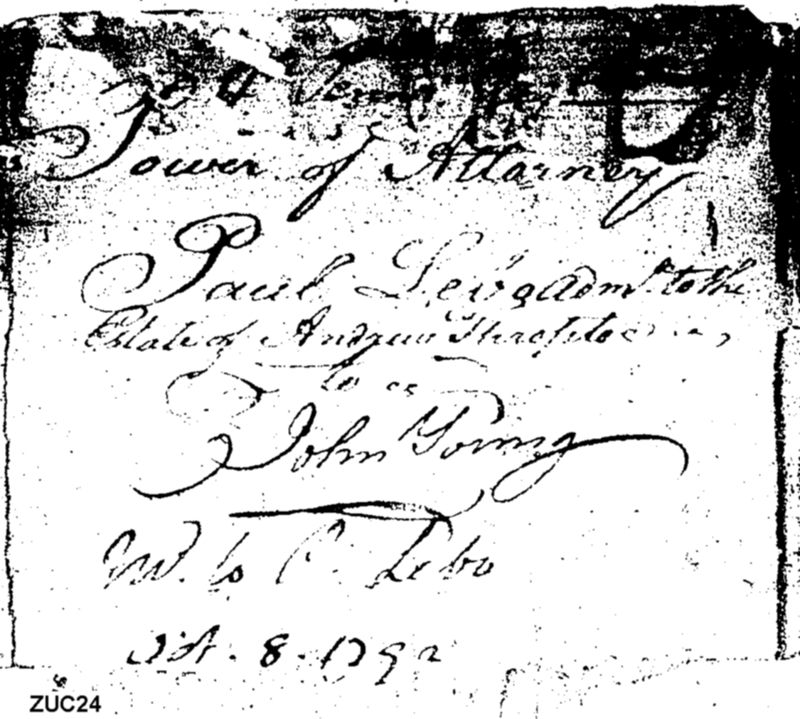 Power of Attorney
Paul Lebo adm.r to the
Estate of Andrew
to
John Young
W. to P. Lebo
Oct. 8. 1792
ZUC24